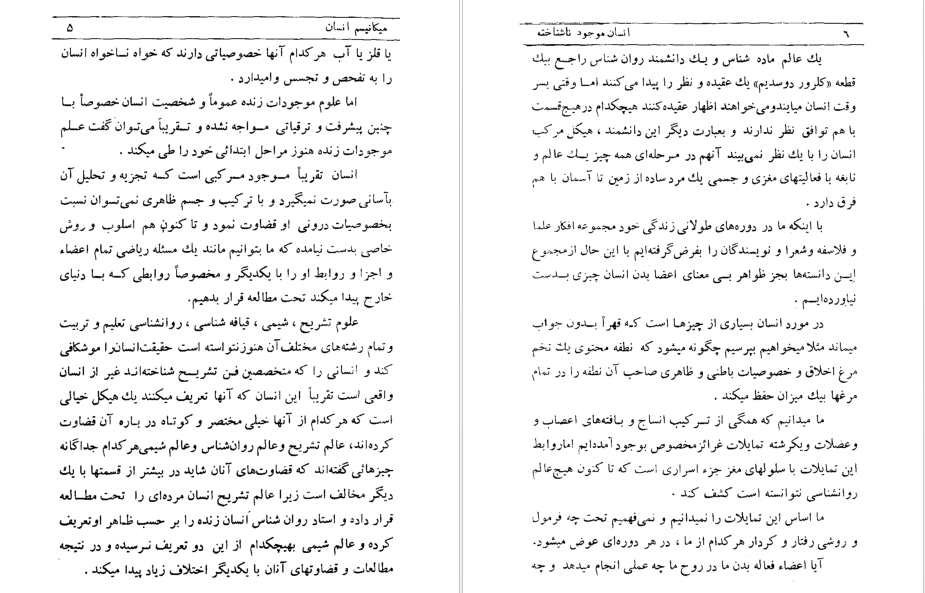 میکانیسم انسان ۵
یا فلز یا آب هرکدام آنها خصوصیاتی دارند که خواه نـاخواه انسان
را به تفحص و تجسس وامیدارد .
اما علوم موجودات زنده عموماً و شخصیت انسان خصوصاً بـا
چنین پیشرفت و ترقیاتی مـواجه نشده و تـقریباً می‌توان گفت علـم
موجودات زنده هنوز مراحل ابتدائی خود را طی میکند .
انسان تقریباً مـوجود مـرکبی است کـه تجزیه و تحلیل آن
بآسانی صورت نمیگیرد و با ترکیب و جسم ظاهری نمی‌توان نسبت
بخصوصیات درونی او قضاوت نمود و تا کنون هم اسلوب و روش
خاصی بدست نیامده که ما بتوانیم مانند یك مسئله ریاضی تمام اعضاء
و اجزا و روابط او را با یکدیگر و مخصوصاً روابطی کـه بـا دنیای
خارج پیدا میکند تحت مطالعه قرار بدهیم.
علوم تشریح ، شیمی ، قیافه شناسی ، روانشناسی تعلیم و تربیت
وتمام رشته‌های مختلف‌آن هنوزنتواسته است حقیقت‌انسان‌را موشکافی
کند و انسانی را که متخصصین فـن تشریـح شناخته‌انـد غیر از انسان
واقعی است تقریباً این انسان که آنها تعریف میکنند یك هیکل خیالی
است که هرکدام از آنها خیلی مختصر و کوتاه در باره آن قضاوت
کرده‌اند، عالم تشریح وعالم روان‌شناس وعالم شیمی‌هرکدام جداگانه
چیزهائی گفته‌اند که قضاوت‌های آنان شاید در بیشتر از قسمتها با یك
دیگر مخالف است زیرا عالم تشریح انسان مرده‌ای را تحت مطـالعه
قرار داده و استاد روان شناس انسان زنده را بر حسب ظاهر اوتعریف
کرده و عالم شیمی بهیچکدام از این دو تعریف نـرسیده و در نتیجه
مطالعات و قضاوتهای آنان با یکدیگر اختلاف زیاد پیدا میکند .
۶ انسان موجود ناشناخته
یك عالم ماده شناس و یـك دانشمند روان شناس راجـع بیك
قطعه «کلرور دوسدیم» یك عقیده و نظر را پیدا می‌کنند امـا وقتی بسر
وقت انسان میایندومی‌خواهند اظهار عقیده‌کنند هیچکدام درهیچ‌قسمت
با هم توافق نظر ندارند و بعبارت دیگر این دانشمند ، هیکل مرکب
انسان را با یك نظر نمی‌بیند آنهم در مرحله‌ای همه چیز یـك عالم و
نابغه با فعالیتهای مغزی و جسمی یك مرد ساده از زمین تا آسمان با هم
فرق دارد .
با اینکه ما در دوره‌های طولانی زندگی خود مجموعه افکار علما
و فلاسفه وشعرا و نویسندگان را بفرض‌گرفته‌ایم با این حال ازمجموع
ایـن دانسته‌ها بجز ظواهر بـی معنای اعضا بدن انسان چیزی بـدست
نیاورده‌ایـم .
در مورد انسان بسیاری از چیزهـا است که قهرآ بـدون جواب
میماند مثلا میخواهیم بپرسیم چگونه میشود که نطفه محتوی یك تخم
مرغ اخلاق و خصوصیات باطنی و ظاهری صاحب آن نطفه را در تمام
مرغها بیك میزان حفظ میکند .
ما میدانیم که همگی از تـرکیب انساج و بـافته‌های اعصاب و
وعضلات ویکرشته تمایلات غرائزمخصوص بوجود آمده‌ایم اماروابط
این تمایلات با سلولهای مغز جزء اسراری است که تا کنون هیچ‌عالم
روانشناسی نتوانسته است کشف کند .
ما اساس این تمایلات را نمیدانیم و نمی‌فهمیم تحت چه فرمول
و روشی رفتار و کردار هرکدام از ما ، در هر دوره‌ای عوض میشود.
آیا اعضاء فعاله بدن ما در روح ما چه عملی انجام میدهد و چه